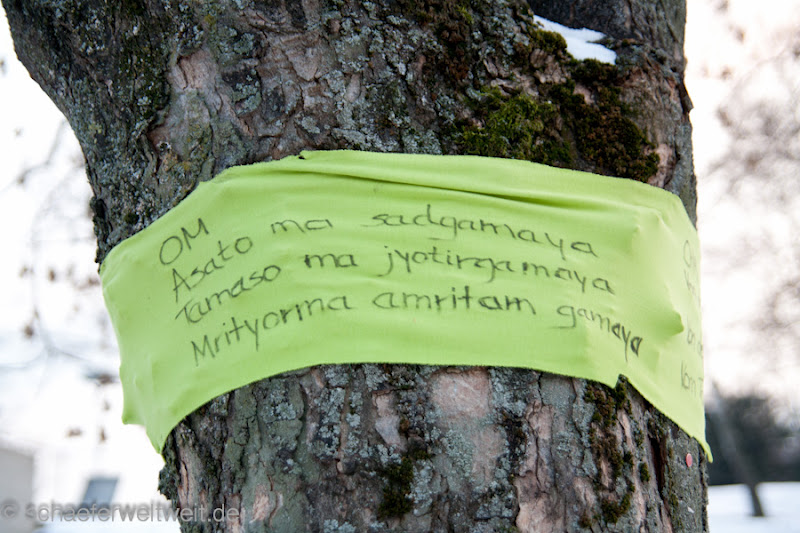 OM
Asato ma sadgamaya
Tamaso ma jyotirgamaya
Mrityorma amritam gamaya
© schaeferweltweit.de